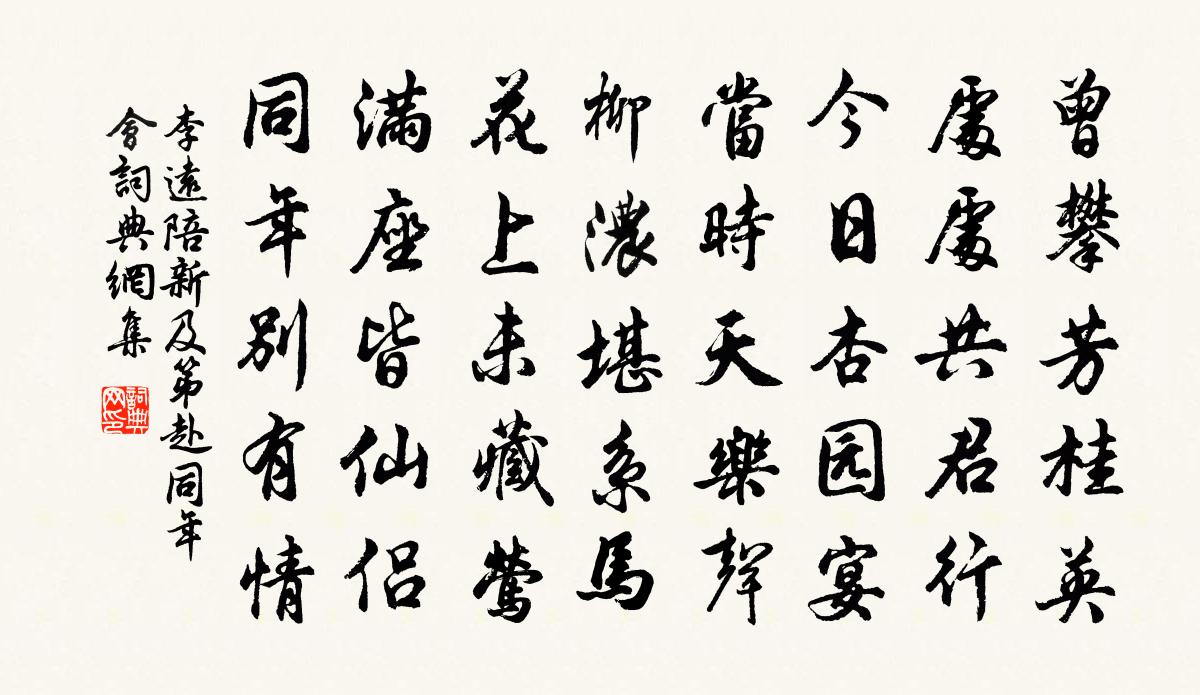 曾攀芳桂英
處處共君行
今日杏园宴
當時天樂聲
柳濃堪系馬
花上未藏鶯
滿座皆仙侣
同年别有情
李遠陪新及第赴同年
會詞典網集
詞典
网印